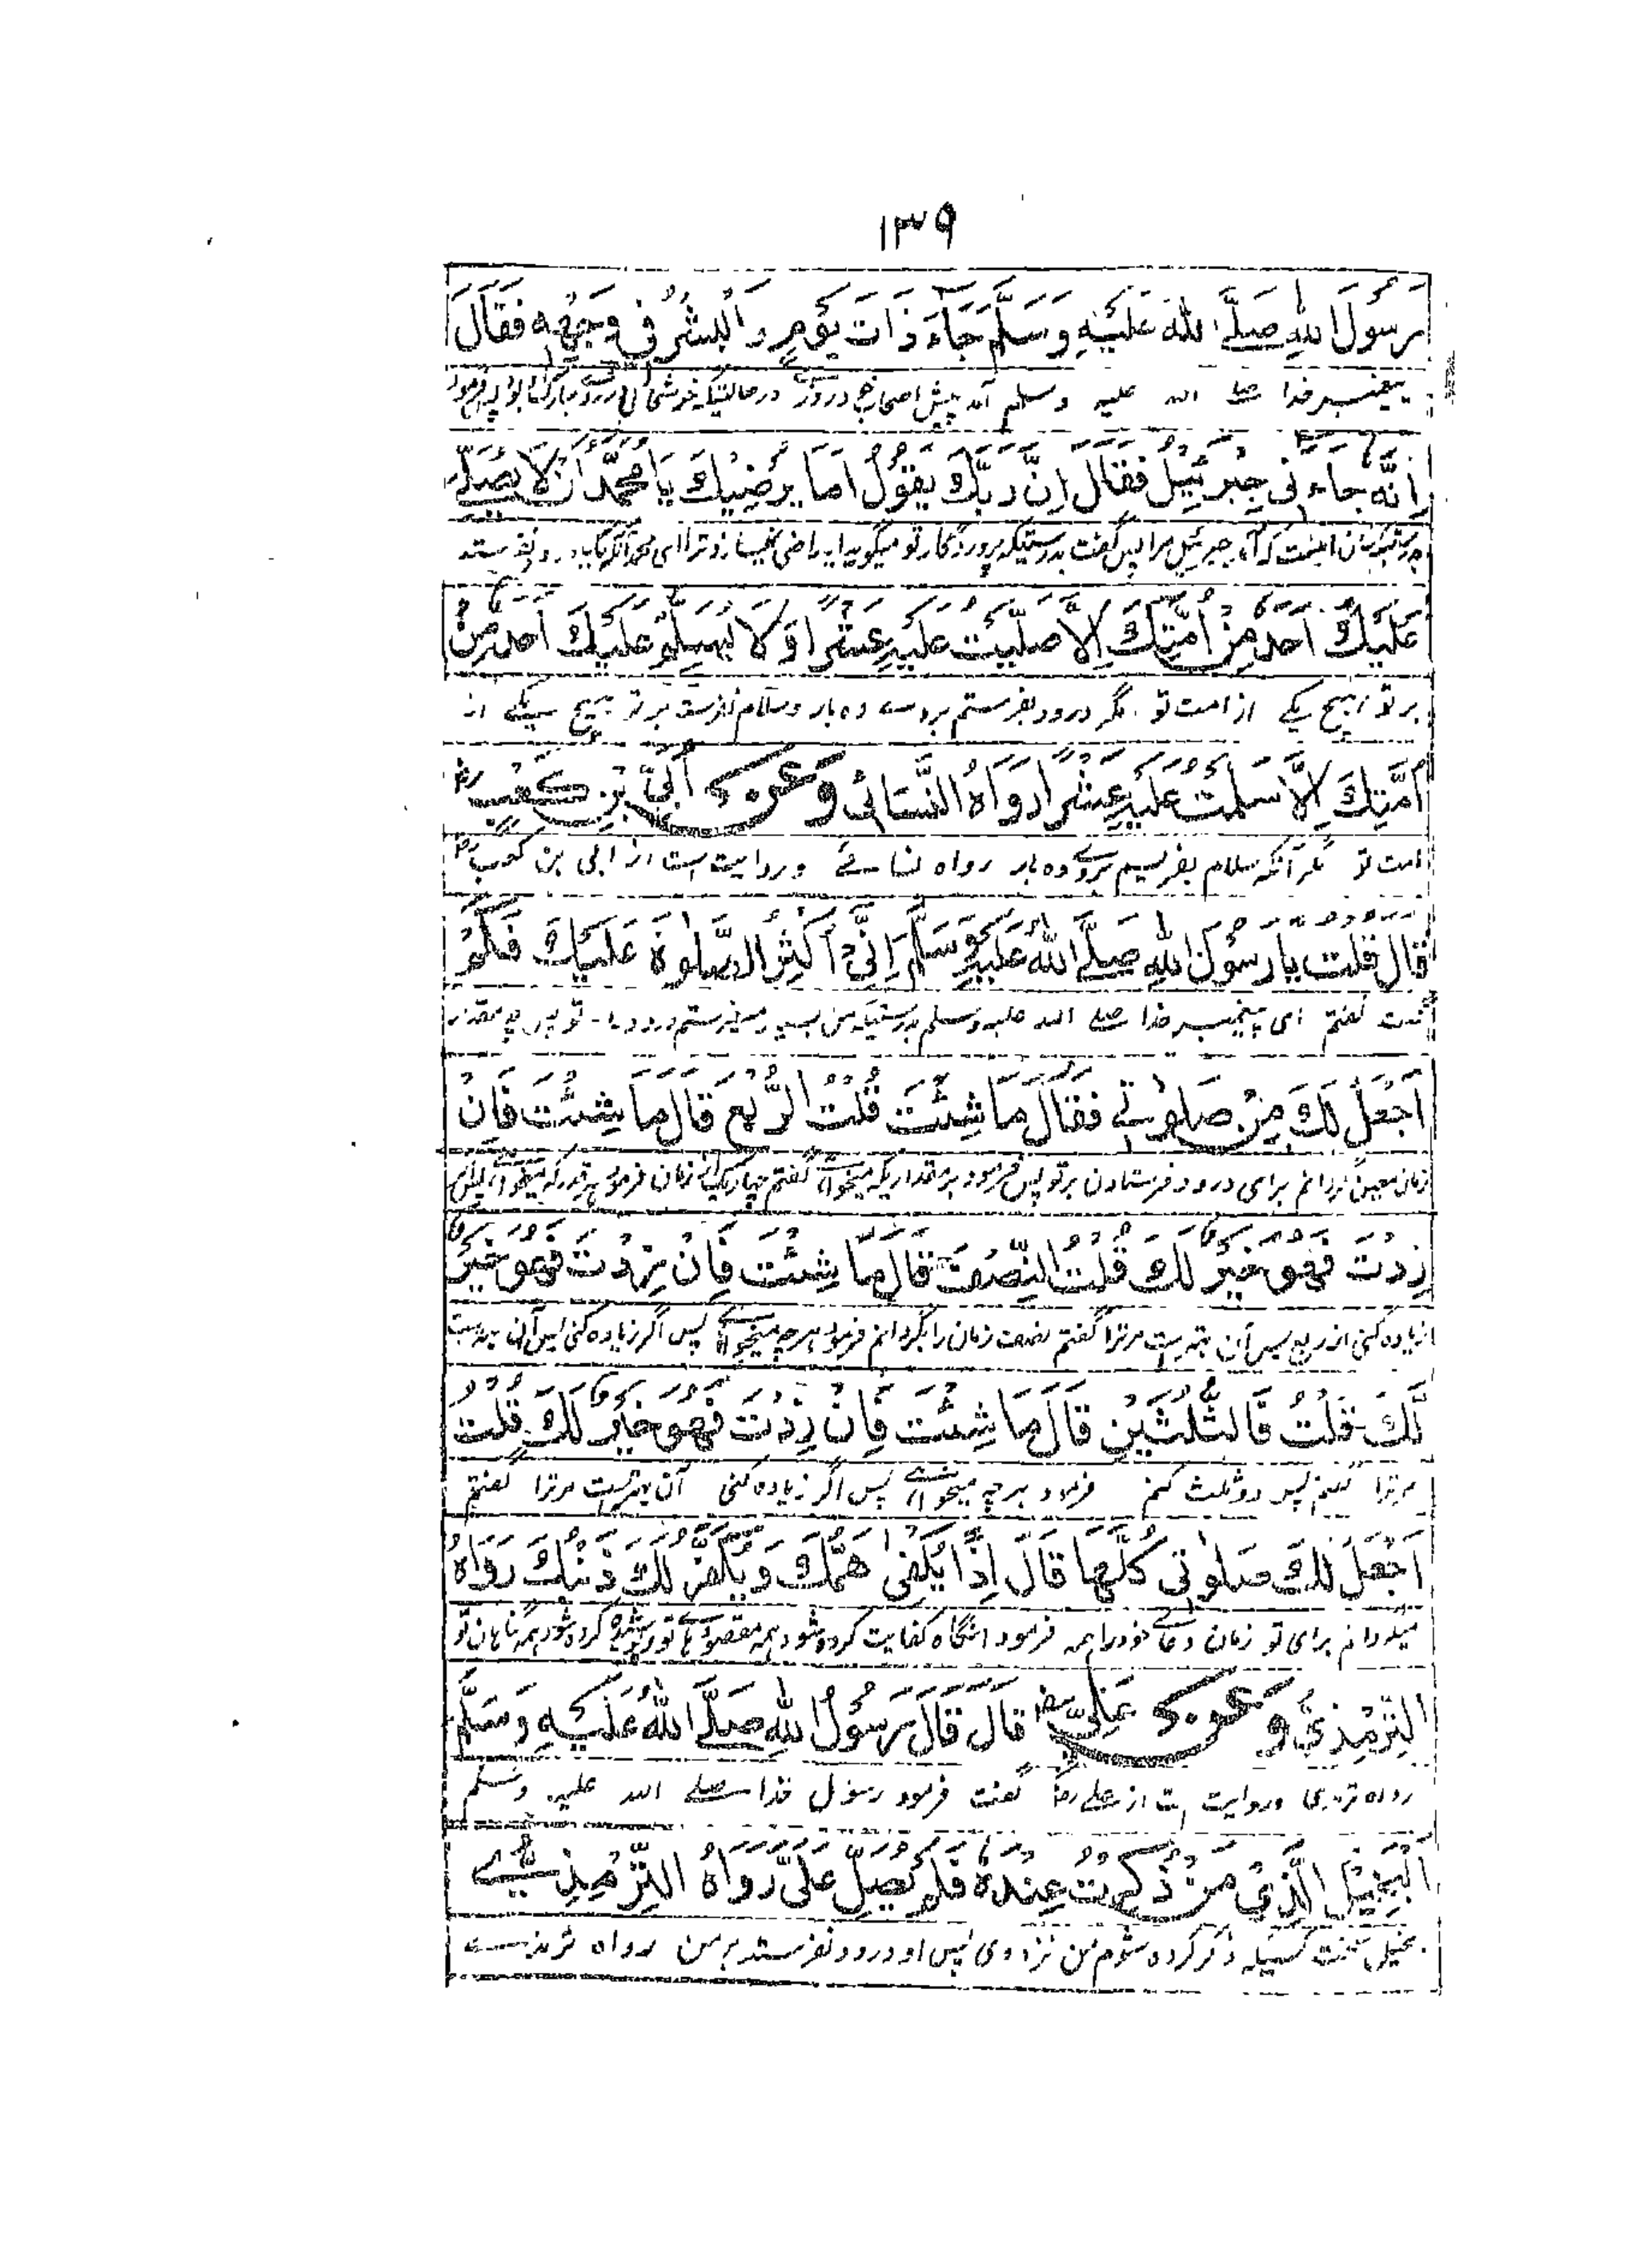 ۱۳۹
رَسُولَ اللهِ صَلَّى اللهُ عَلَيْهِ وَسَلَّمَ جَاءَ ذَاتَ يَوْمٍ وَالْبِشْرُ فِي وَجْهِهِ فَقَالَ
پیغمبر خدا صلے اللہ علیہ وسلم آمد پیش اصحاب در روزے در حالتیکه خوشی
إِنَّهُ جَاءَنِي جِبْرَئِيلُ فَقَالَ إِنَّ رَبَّكَ يَقُولُ أَمَا يُرْضِيكَ يَا مُحَمَّدُ أَنْ لَا يُصَلِّيَ
آمد جبرئیل مرا پس گفت بدرستیکه پروردگار تو میگوید آیا راضی ترا ای محمد
عَلَيْكَ أَحَدٌ مِنْ أُمَّتِكَ إِلَّا صَلَّيْتُ عَلَيْهِ عَشْرًا وَلَا يُسَلِّمُ عَلَيْكَ أَحَدٌ مِنْ
بر تو هیچ یکے از امت تو مگر درود بفرستم بروے ده بار وسلام نفرستد بر تو هیچ یکے از
أُمَّتِكَ إِلَّا سَلَّمْتُ عَلَيْهِ عَشْرًا رَوَاهُ النَّسَائِي وَعَنْ أُبَيِّ بْنِ كَعْبٍ رض
امت تو مگر آنکه سلام بفرستم بروے ده بار رواه نسائے و روایت است از ابی بن کعب رض
قَالَ قُلْتُ يَا رَسُولَ اللهِ صَلَّى اللهُ عَلَيْهِ وَسَلَّمَ إِنِّي أُكْثِرُ الصَّلٰوةَ عَلَيْكَ فَكَمْ
گفت گفتم ای پیغمبر خدا صلے اللہ علیہ وسلم بدرستیکه من بسیار میفرستم درود بر تو پس چه مقدار
أَجْعَلُ لَكَ مِنْ صَلٰوتِي فَقَالَ مَا شِئْتَ قُلْتُ الرُّبُعَ قَالَ مَا شِئْتَ فَإِنْ
زمان معین گردانم برای درود فرستادن بر تو پس فرمود هر مقداریکه میخواهے گفتم چهار یک زمان فرمود هر قدر که میخواهے پس اگر
زِدْتَ فَهُوَ خَيْرٌ لَكَ قُلْتُ النِّصْفَ قَالَ مَا شِئْتَ فَإِنْ زِدْتَ فَهُوَ خَيْرٌ
زیاده کنی از ربع پس آن بهترست مرترا گفتم نصف زمان را بگردانم فرمود هرچه میخواهے پس اگر زیاده کنی پس آن بهترست
لَكَ قُلْتُ فَالثُّلُثَيْنِ قَالَ مَا شِئْتَ فَإِنْ زِدْتَ فَهُوَ خَيْرٌ لَكَ قُلْتُ
مرترا گفتم پس دو ثلث کنم فرمود هرچه میخواهے پس اگر زیاده کنی آن بهترست مرترا گفتم
أَجْعَلُ لَكَ صَلٰوتِي كُلَّهَا قَالَ إِذًا يُكْفٰى هَمُّكَ وَيُكَفَّرُ لَكَ ذَنْبُكَ رَوَاهُ
میگردانم برای تو زمان دعاے خود را همه فرمود آنگاه کفایت کرده شود همه مقصودهاے تو کرده شود همه گناهان تو
التِّرْمِذِيُّ وَعَنْ عَلِيٍّ رض قَالَ قَالَ رَسُولُ اللهِ صَلَّى اللهُ عَلَيْهِ وَسَلَّمَ
رواه ترمذی و روایت است از علے رض گفت فرمود رسول خدا صلے اللہ علیہ وسلم
الْبَخِيلُ الَّذِي مَنْ ذُكِرْتُ عِنْدَهُ فَلَمْ يُصَلِّ عَلَيَّ رَوَاهُ التِّرْمِذِيُّ
بخیل کسیکه ذکر کرده شوم من نزد وی پس او درود نفرستد بر من رواه ترمذے